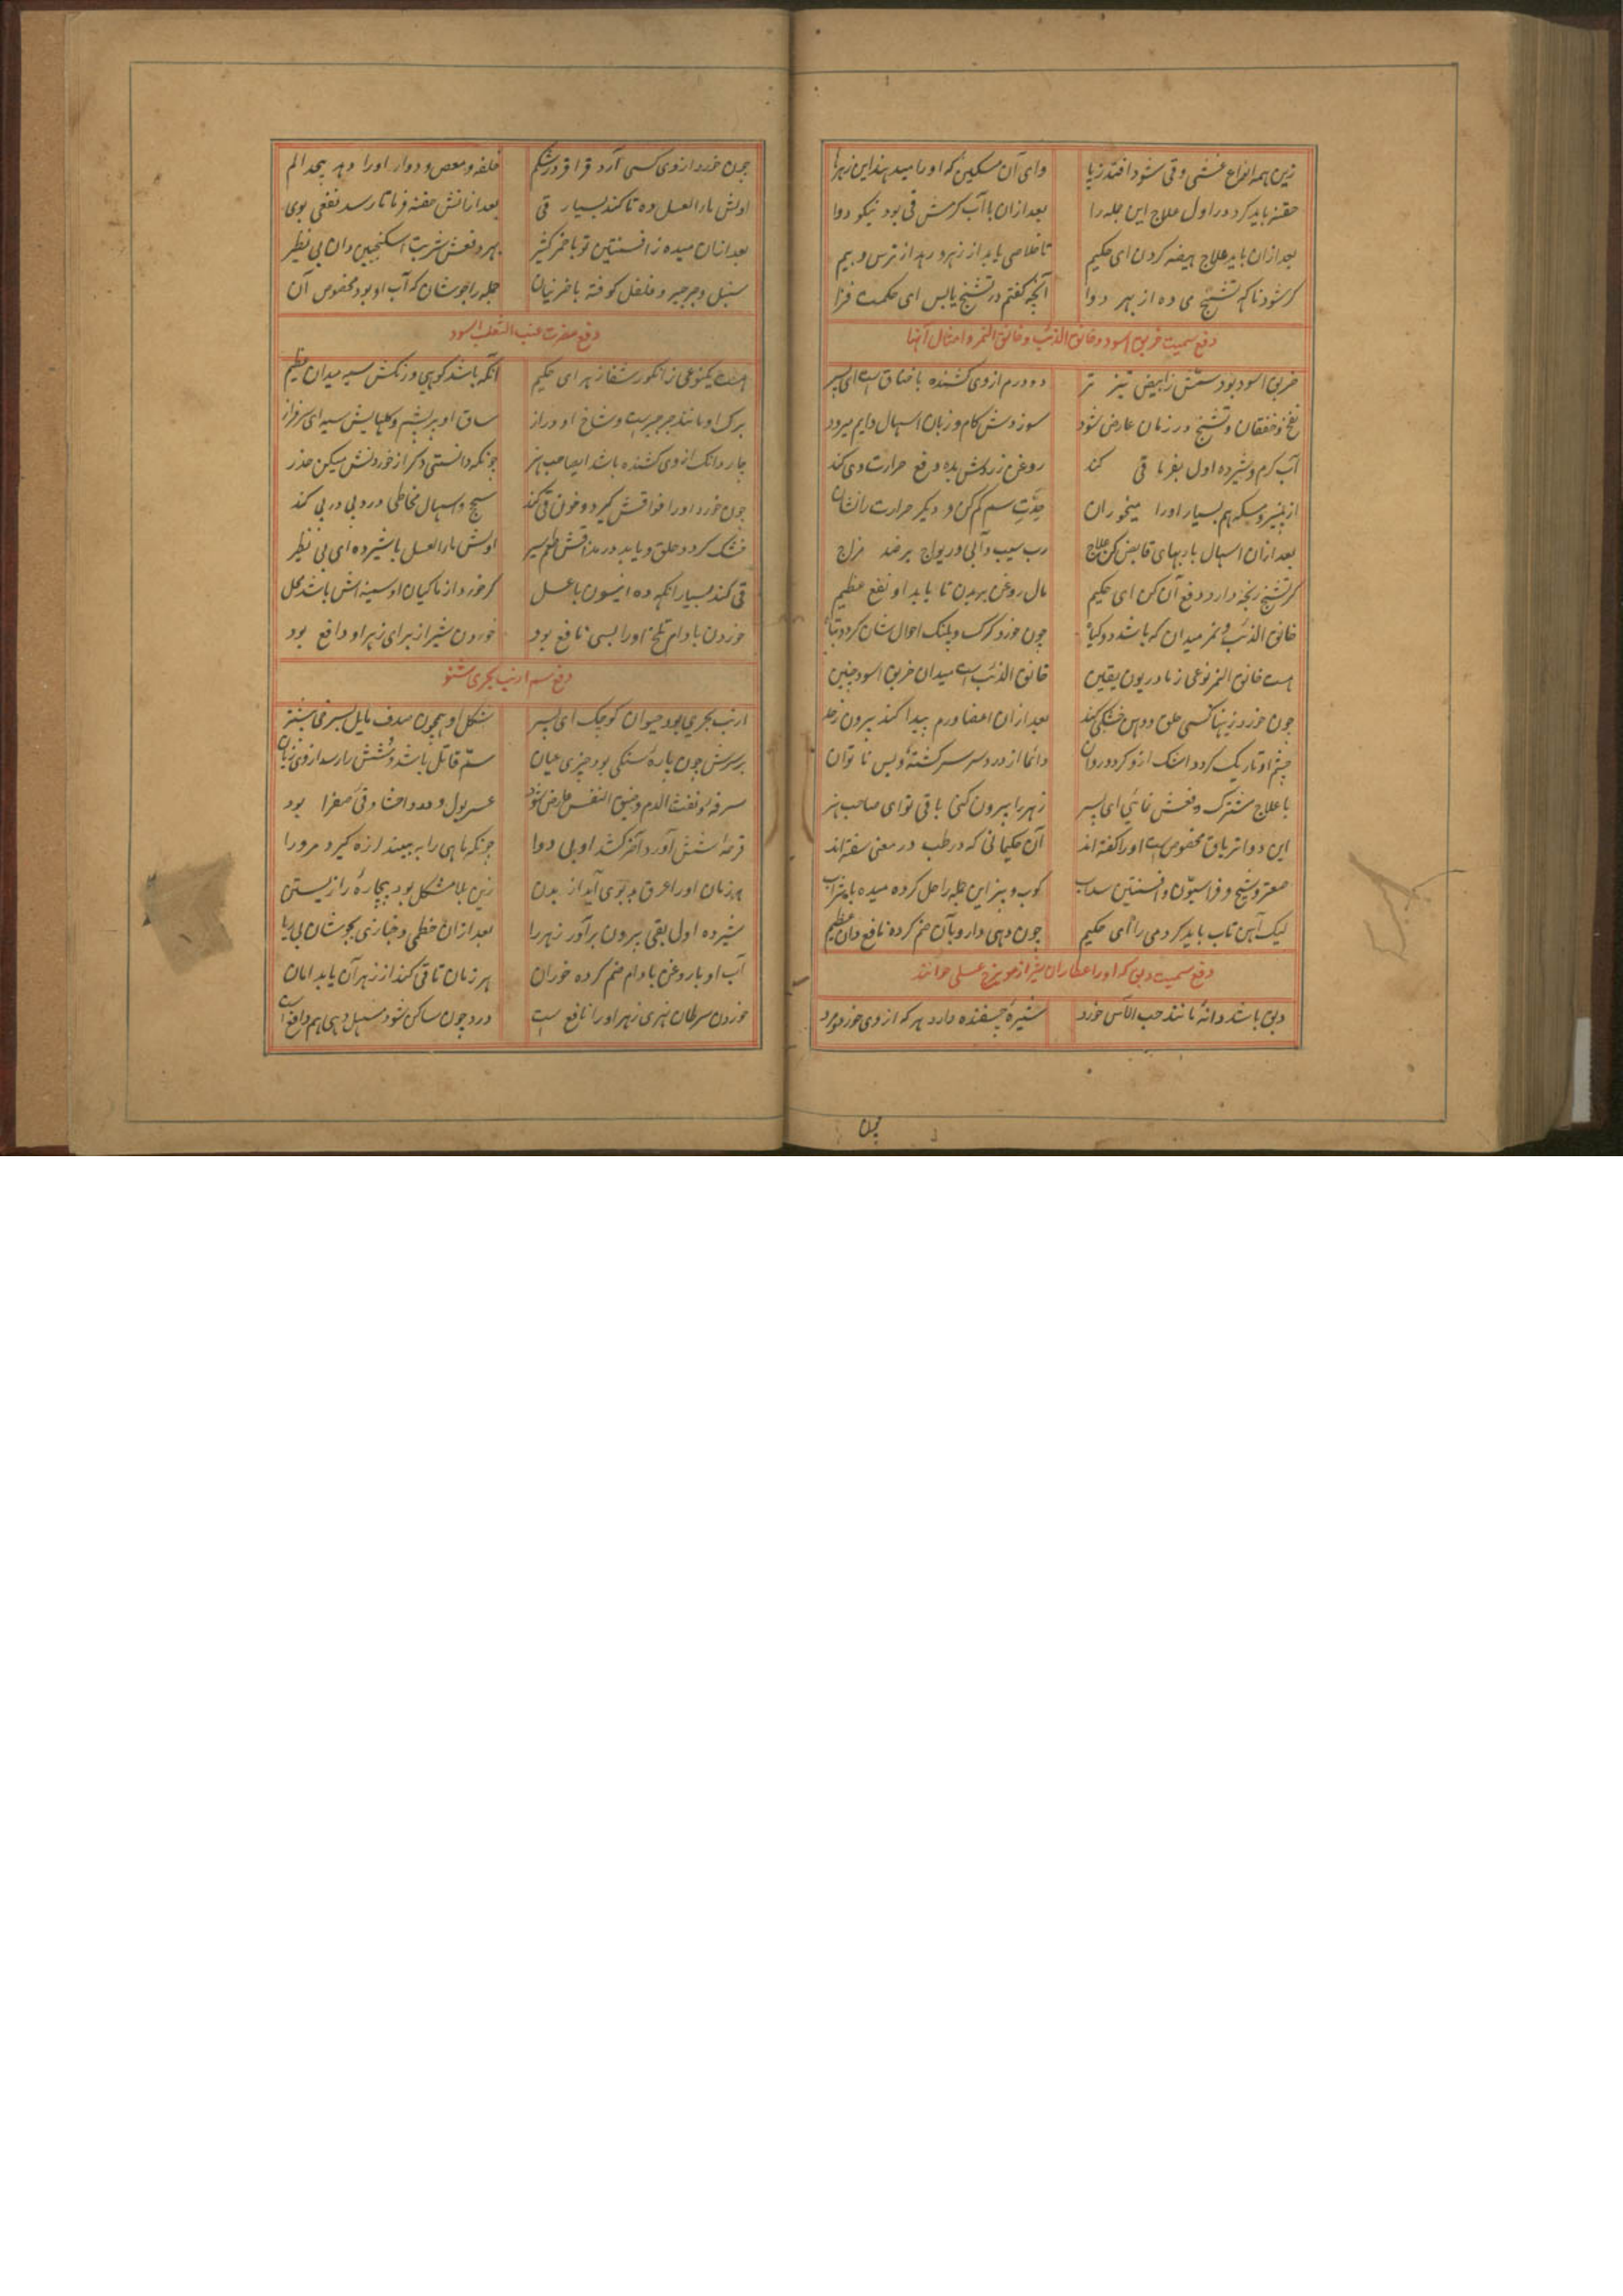 زین همه انواع غشی و قی شود افتد ز پا وای آن مسکین که او را میدهند این زهرها
حقنه باید کرد در اول علاج این جمله را بعد ازان با آب گرمش قی بود نیکو دوا
بعد ازان باید علاج هیضه کردن ای حکیم تا خلاصی یابد از زهر و رهد از ترس و بیم
گر شود ناگه تشنج می ده از بهر دوا آنچه گفتم در تشنج یابس ای حکمت فزا
دفع سمیت خربق اسود و خانق الذئب و خانق النمر و امثال آنها
خربق اسود بود سمش ز ابیض تیز تر دو درم از وی کشنده با خناق است ای پسر
نفخ و خفقان و تشنج در زمان عارض شود سوزوش کام و زبان اسهال دایم میرود
آب گرم و شیر ده اول بفرما قی کند روغن زردش بده دفع حرارت وی کند
از پنیر و مسکه هم بسیار او را میخوران حدّت سم کم کن و دیگر حرارت را نشان
بعد ازان اسهال با ربهای قابض کن علاج رب سیب و آبی و ریواج بر ضد مزاج
گر تشنج رنجه دارد دفع آن کن ای حکیم مال روغن بر بدن تا یابد او نفع عظیم
خانق الذئب و نمر میدان که باشد دو گیا چون خورد گرگ و پلنگ احوال شان گردد تباه
هست خانق النمر نوعی ز مادریون یقین خانق الذئب است میدان خربق اسود چنین
چون خورد زینها کسی حلق و دهن خشکی کند بعد ازان اعضا ورم پیدا کند بیرون ز حد
چشم او تاریک گردد اشک ازو گردد روان دائما از درد سر سرگشته و بس ناتوان
با علاج مشترک دفعش نمائی ای پسر زهر را بیرون کنی با قی تو ای صاحب هنر
این دوا تریاق مخصوص است او را گفته اند آن حکیمانی که در طب در معنی سفته اند
صعتر و شیح و فراسیون و افسنتین سداب کوب و بیز این جمله را حل کرده میده با شراب
لیک آهن تاب باید کرد می را ای حکیم چون دهی دارو بآن ضم کرده نافع دان عظیم
دفع سمیت دبق که او را عطاران شیراز مویزج عسلی خوانند
دبق باشد دانهٔ مانند حب الآس خورد شیرهٔ چسفنده دارد هر که از وی خورد مرد
چون
چون خورد از وی کسی آرد قراقر در شکم خلفه و مغص و دوار او را دهد بیحد الم
اولش ماء العسل ده تا کند بسیار قی بعد ازانش حقنه فرما تا رسد نفعی بوی
بعد ازان میده ز افسنتین تو با خمر کثیر بهر دفعش شربت اسکنجبین دان بی نظیر
سنبل و جرجیر و فلفل کوفته با خمر نیان جمله را جوشان که آب او بود مخصوص آن
دفع مضرت عنب الثعلب اسود
هست یکنوعی ز انگور شفا زهر ای حکیم آنکه باشد کوهی و رنگش سیه میدان عظیم
برگ او مانند جرجیر است و شاخ او دراز ساق او بر پشم و گلهایش سیه ای سرفراز
چار دانگ از وی کشنده باشد ای صاحب هنر چونکه دانستی دگر از خوردنش میکن حذر
چون خورد او را فواقش گیرد و خون قی کند سحج و اسهال مخاطی درد پی در پی کند
خشک گردد حلق و یابد در مذاقش طعم شیر اولش ماء العسل با شیر ده ای بی نظیر
قی کند بسیار انگه ده انیسون با عسل گر خورد از ماکیان او سینه اش باشد محل
خوردن بادام تلخ او را بسی نافع بود خوردن شیر از برای زهر او دافع بود
دفع سم ارنب بحری شنو
ارنب بحری بود حیوان کوچک ای پسر شکل او همچون صدف مایل بسرخی بیشتر
بر سرش چون پارهٔ سنگی بود چیزی عیان سمّ قاتل باشد و شش را رسد از وی زیان
سرفه و نفث الدم و ضیق النفس عارض شود عسر بول و درد احشا و قی صفرا بود
قرحهٔ شش آورد آخر کشد او بی دوا چونکه ماهی را به بیند لرزه گیرد مر ورا
هر زمان او را عرق بد بوی آید از بدن زین بلا مشکل بود بیچاره را زیستن
شیر ده اول بقی بیرون بر آور زهر را بعد ازان خطمی و خبازی بجوشان بی ریا
آب او با روغن بادام ضم کرده خوران هر زمان تا قی کند از زهر آن یابد امان
خوردن سرطان نهری زهر او را نافع است درد چون ساکن شود مسهل دهی هم دافع است